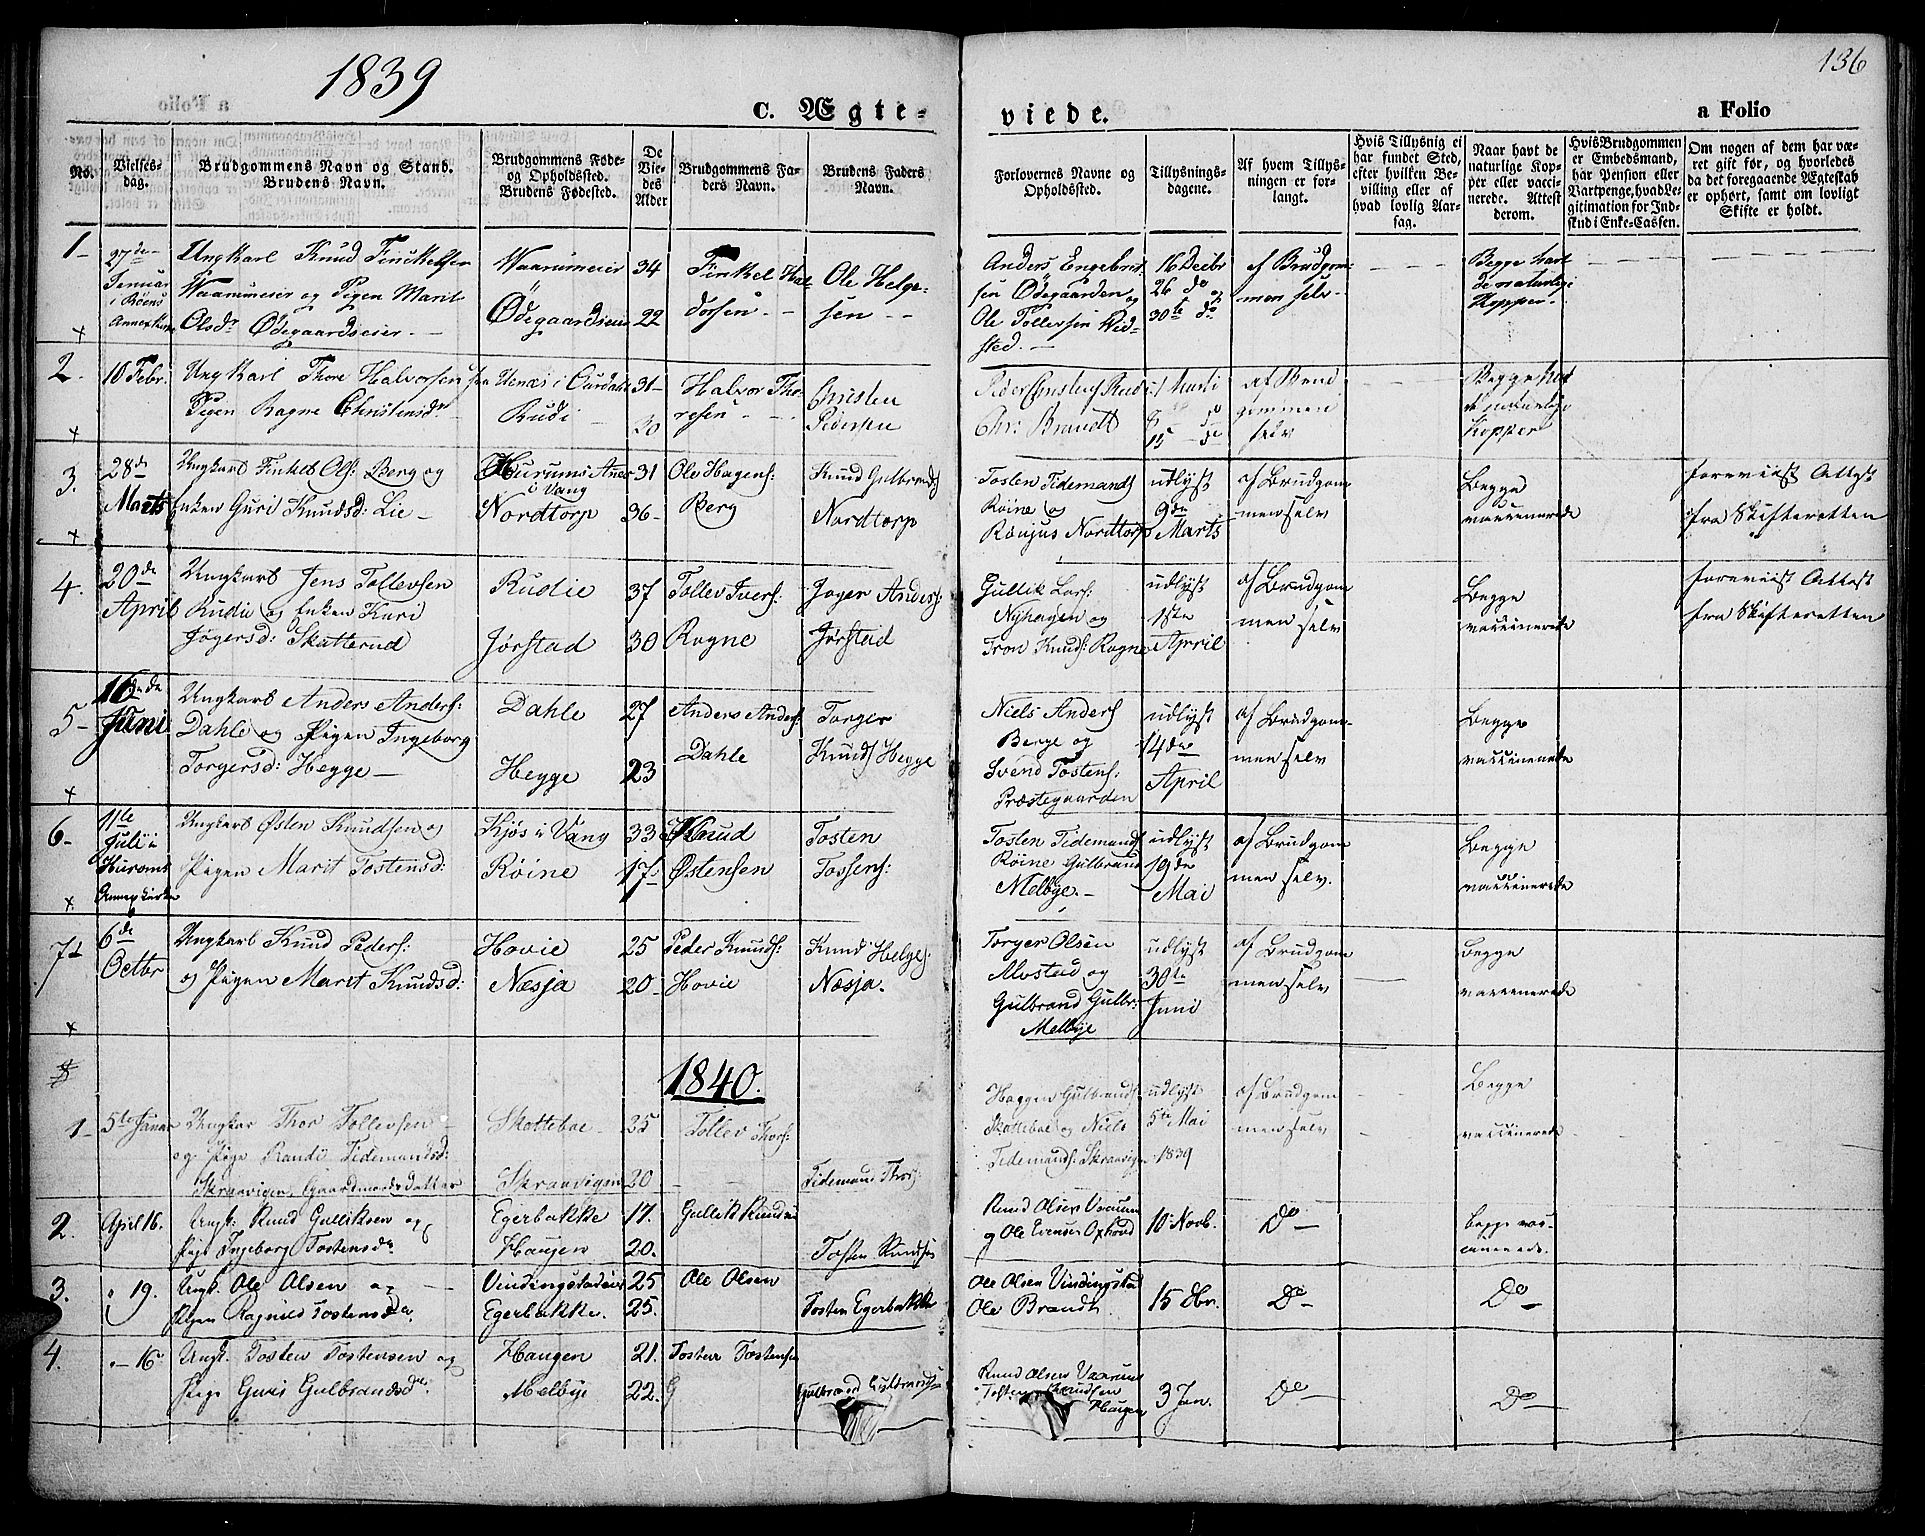 1839
136
a Folio
C. Ægte-
viede.
a Folio
No.
Vielses-
dag.
Brudgommens Navn og Stand.
Brudens Navn.
Brudgommens Føde-
og Opholdssted.
Brudens Fødested.
De
Vie-
des
Alder
Brudgommens Fa-
ders Navn.
Brudens Faders
Navn.
Forlovernes Navne og
Opholdssted.
Tillysnings-
dagene.
Af hvem Tillys-
ningen er for-
langt.
Hvis Tillysnig ei
har fundet Sted,
efter hvilken Be-
villing eller af
hvad lovlig Aar-
sag.
Naar havt de
naturlige Kop-
per eller vacci-
nerede. Attest
derom.
Hvis Brudgommen
er Embedsmand,
har Pension eller
Vartpenge, hvad Le-
gitimation for Ind-
skud i Enke-Cassen.
Om nogen af dem har væ-
ret gift før, og hvorledes
da det foregaaende Ægteskab
er ophørt, samt om lovligt
Skifte er holdt.
1-
27de
Januar
i Røens
Annexkirke
Ungkarl Knud Finkelsen
Waarumeier og Pigen Marit
Olsdr Ødegaardseier -
Waarumeier
Ødegaardseier
34
22
Finkel Hal-
dorsen - -
Ole Helge-
sen - -
Anders Engebret-
sen Ødegaarden og
Ole Tollevsen Wid-
sted. -
16 Decbr
26 do og
30te do
af Brudgom-
men selv-
Begge havt
de naturlige
Kopper.
2.
10 Febr.
Ungkarl Thore Halvorsen
Pigen Ragne Christensdr
Uenæs i Aurdal
Rudi
31-
20
Halvor Tho-
resen - -
Christen
Pedersen
Peder Christens Rudi
Chr: Brandt
Marti
15 - do
af Brud
gommen
selv
Begge hat
de naturlige
Kopper
3.
28de
Marts
Ungkarl Finkel Ols: Berg og
Enken Guri Knudsd: Lie -
Hurums Anex
i Vang
Nordtorp
31
36-
Ole Hagens:
Berg
Knud Gulbrands:
Nordtorp
Tosten Tidemands
Røine og
Rønjus Nordtorp
udlyst
9de
Marts
af Brudgom
men selv
Begge
vaccinerede
foreviist Attest
fra Skifteretten
4.
20de
April
Ungkarl Jens Tollevsen
Rudie og Enken Kari
Jøgersd: Skatterud
Rudie
Jørstad
37
30
Tollev Ivers:
Rogne
Joger Anders:
Jørstad
Gullik Lars:
Nyhagen og
Tron Knuds: Rogne
udlyst
1ste
April
af Brudgom
men selv
Begge
vaccinerede
foreviist Attest
fra Skifteretten
5-
16de
Juni
Ungkarl Anders Anders:
Dahle og Pigen Ingeborg
Torgersd: Hegge -
Dahle
Hegge
27
23
Anders Anders:
Dahle
Torger
Knuds Hegge
Niels Anders
Berge og
Svend Tostens:
Præstegaarden
udlyst
14de
April
af Brudgom-
men selv
Begge
vaccinerede
6-
11te
Juli i
Hurums
Annexkirke
Ungkarl Østen Knudsen og
Pigen Marit Tostensd:
Kjøs i Vang
Røine
33
17
Knud
Østensen
Tosten
Tossens:
Tosten Tidemands
Røine Gulbrand
Melbye. -
udlyst
19de
Mai
af Brudgom
men selv.
Begge
vaccinerede
7
6de
Octbr
Ungkarl Knud Peders:
og Pigen Marit Knudsd:
Hovie
Næsja
25
20
Peder Knuds:
Hovie
Knud Helges:
Næsja.
Torger Olsen
Alvstad og
Gulbrand Gulbr:
Melbye
udlyst
30te
Juni
af Brudgom
men selv
Begge
vaccinerede
8
1840.
1-
5te Januar
Ungkar Thor Tollevsen -
og Pige Randi Tidemandsd:
Skraavigen, Gaardmandsdatter
Skattebøe -
Skraavigen
35
20
Tollev Thors:
Tidemand Thors:
Haagen Gulbrands:
Skattebøe og Niels
Tidemands: Skraavigen
udlyst
5te Mai
1839
af Brudgom
men selv
Begge
vaccinerede
2.
April 16.
Ungk. Knud Gulliksen og
Pige Ingeborg Tostensdr
Egerbakke
Haugen
17.
20.
Gullik Knudsen
Tosten Knudsen
Knud Olsen Vaarum
og Ole Evensen Ophoud
10 Novb.
Do -
begge vac-
cinerede.
3.
" 19.
Ungk. Ole Olsen og -
Pigen Ragnild Tostensdr.
Vindingstadeier
Egerbakke.
25
25.
Ole Olsen
Tosten Egerbakke
Ole Olsen Vindingstad
Ole Brandt.
15 Dbr.
Do -
Do -
4.
" - 16
Ungk. Tosten Tostensen og
Pige Guri Gulbrandsdr.
Haugen
Melbye
21.
22.
Tosten Tostensen
G
Gulbrand Gulbrandsen
Knud Olsen Vaarum
Tosten Knudsen
Haugen
3 Jan.
Do -
Do -